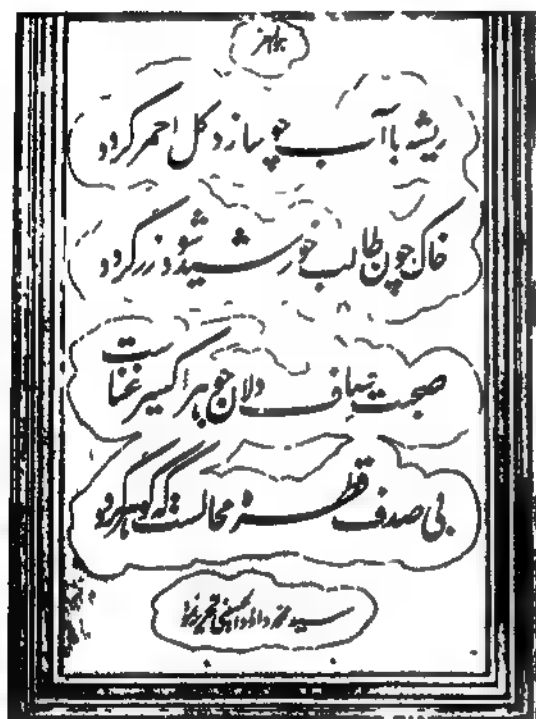 هوالعزیز
ریشه با آب چو سازد گل احمر گردد
خاک چون طالب خورشید شود زر گردد
صحبت صاف دلان جوهر اکسیر غناست
بی صدف قطره محالست که گوهر گردد
سید محمد داؤد الحسینی تحریر نمود